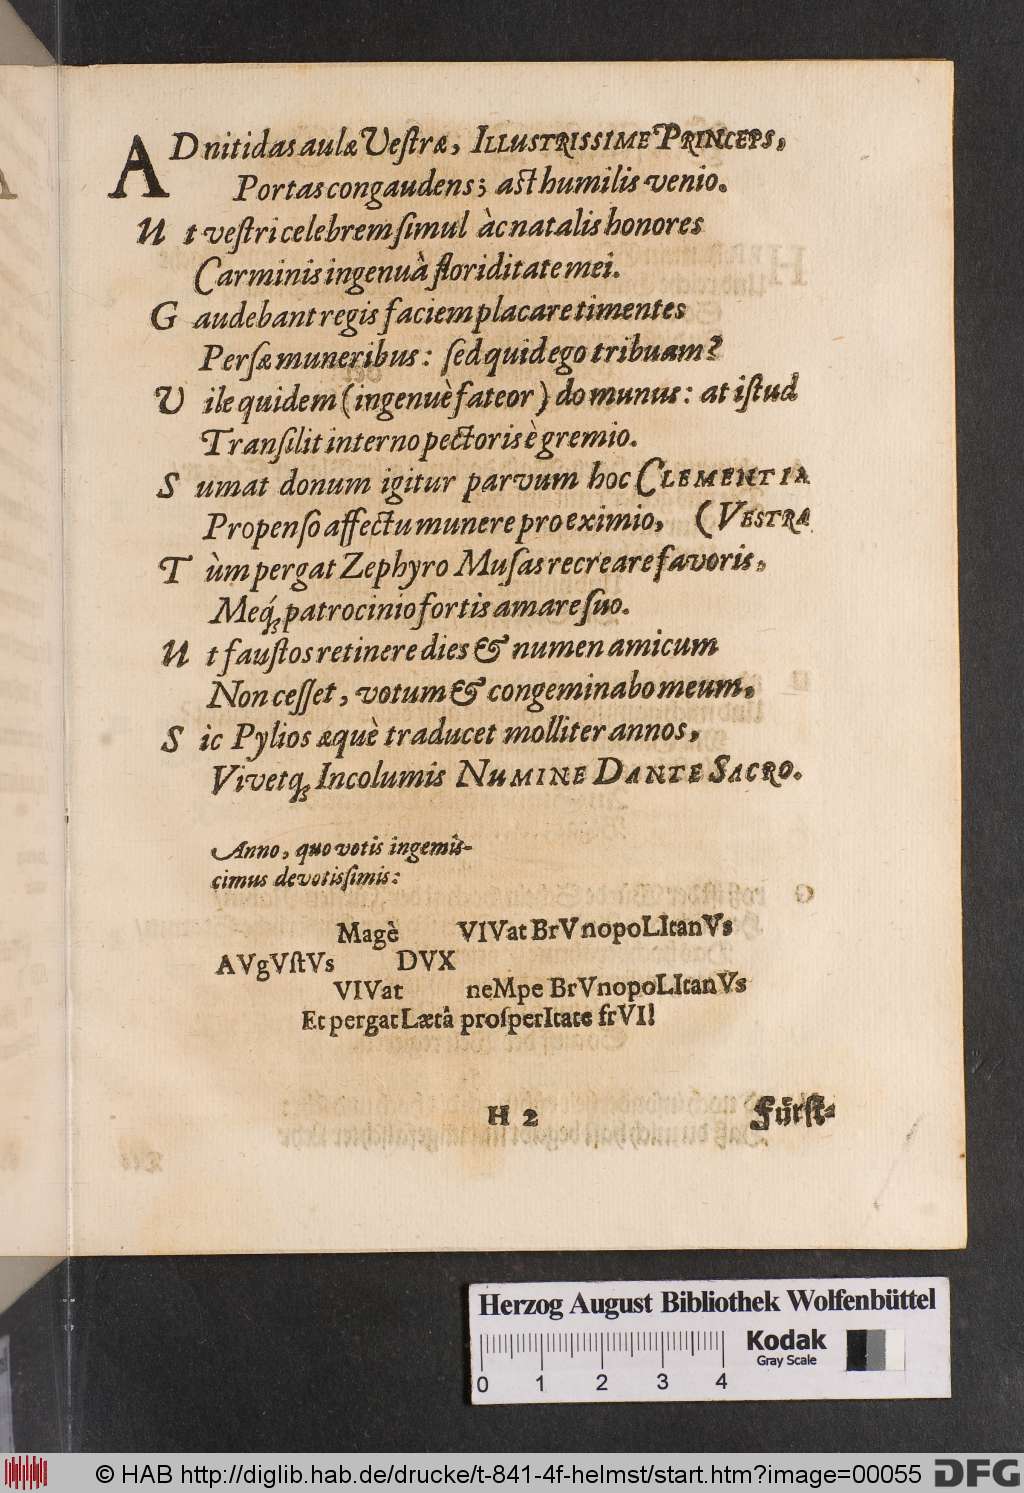 AD nitidas aulæ Vestræ, ILLUSTRISSIME PRINCEPS,
Portas congaudens; ast humilis venio.
Ut vestri celebrem simul àc natalis honores
Carminis ingenuâ floriditate mei.
Gaudebant regis faciem placare timentes
Persæ muneribus: sed quid ego tribuam?
Vile quidem (ingenuè fateor) do munus: at istud
Transilit interno pectoris è gremio.
Sumat donum igitur parvum hoc CLEMENTIA
Propenso affectu munere pro eximio, (VESTRA
Tùm pergat Zephyro Musas recreare favoris,
Meq́; patrocinio fortis amare suo.
Ut faustos retinere dies & numen amicum
Non cesset, votum & congeminabo meum.
Sic Pylios æquè traducet molliter annos,
Vivetq; Incolumis NUMINE DANTE SACRO.
Anno, quo votis ingemis-
cimus devotissimis:
Magè VIVat BrVnopoLItanVs
AVgVstVs DVX
VIVat neMpe BrVnopoLItanVs
Et pergat Lætâ prosperItate frVI!
H 2 Fürst-
Herzog August Bibliothek Wolfenbüttel
Kodak
Gray Scale
0 1 2 3 4
© HAB http://diglib.hab.de/drucke/t-841-4f-helmst/start.htm?image=00055 DFG